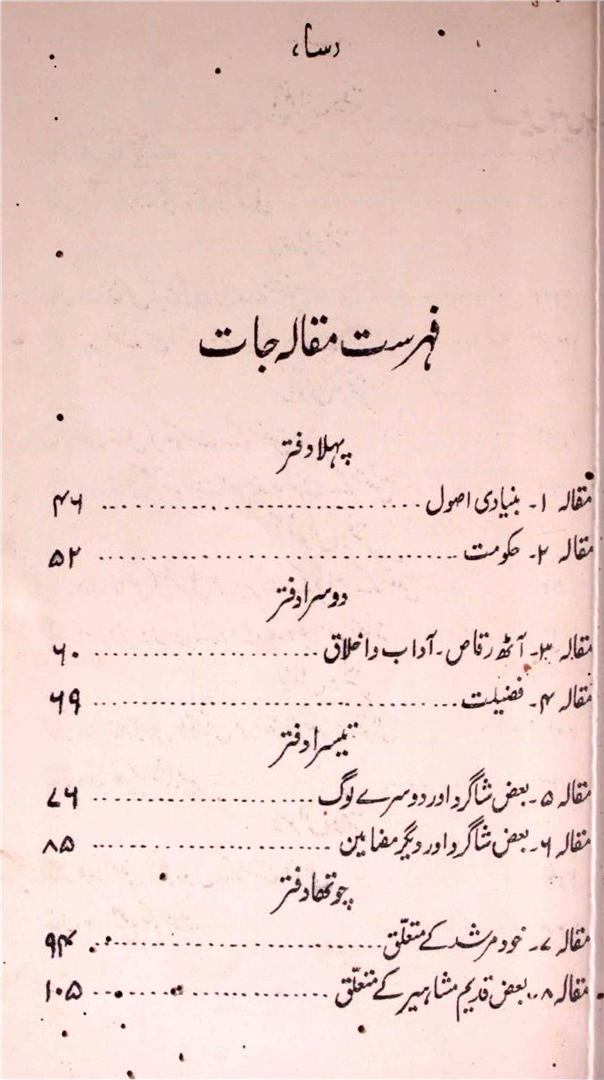 دساء
فہرست مقالہ جات
پہلا دفتر
مقالہ ۱۔ بنیادی اصول .......................... ۴۶
مقالہ ۲۔ حکومت .......................... ۵۲
دوسرا دفتر
مقالہ ۳۔ آٹھ رقاص۔ آداب و اخلاق .......................... ۶۰
مقالہ ۴۔ فضیلت .......................... ۶۹
تیسرا دفتر
مقالہ ۵۔ بعض شاگرد اور دوسرے لوگ .......................... ۷۶
مقالہ ۶۔ بعض شاگرد اور دیگر مضامین .......................... ۸۵
چوتھا دفتر
مقالہ ۷۔ خود مرشد کے متعلّق .......................... ۹۴
مقالہ ۸۔ بعض قدیم مشاہیر کے متعلّق .......................... ۱۰۵